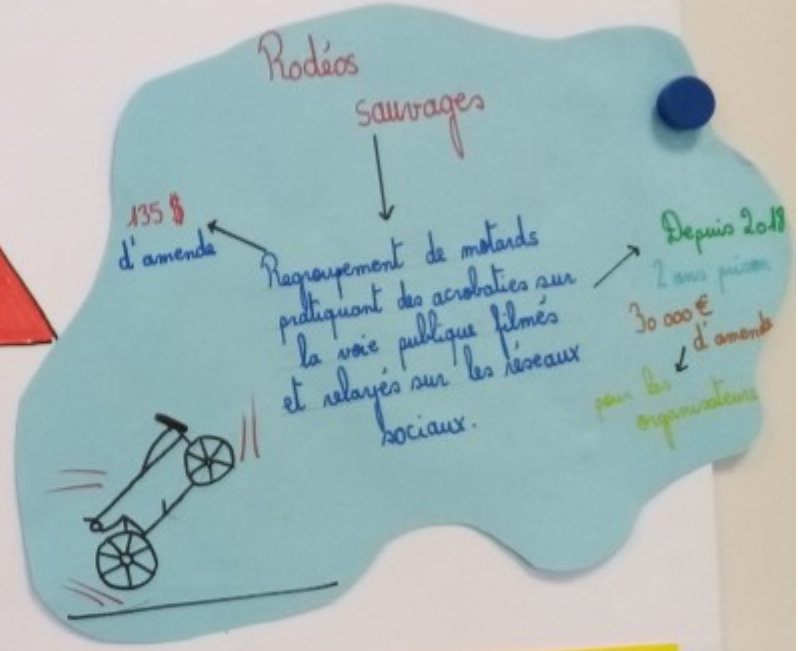 Rodéos
sauvages
135 $
d'amende
Regroupement de motards
pratiquant des acrobaties sur
la voie publique filmés
et relayés sur les réseaux
sociaux.
Depuis 2018
2 ans prison
30 000 €
d'amende
pour les
organisateurs